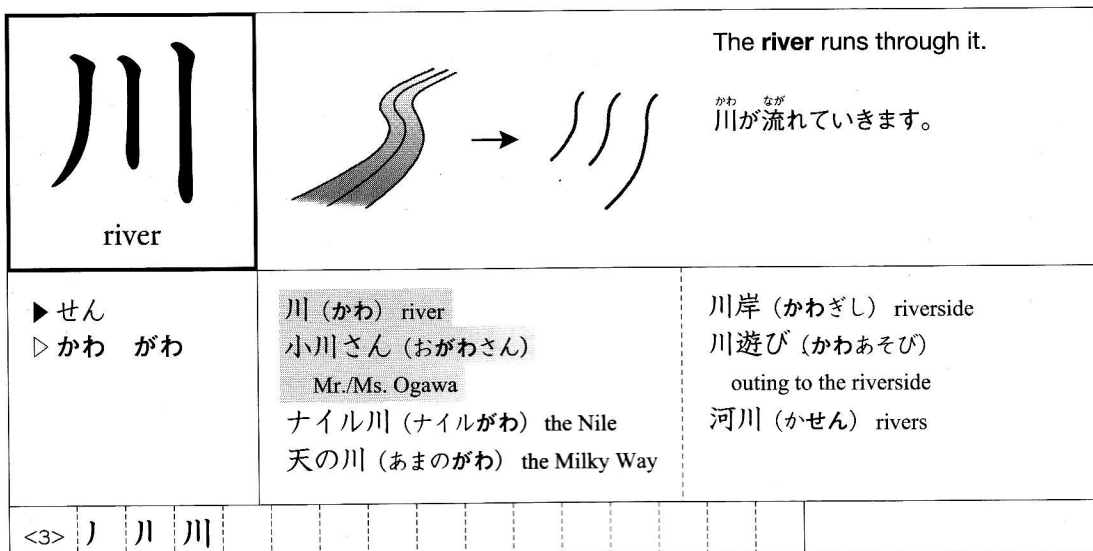 川
river
The river runs through it.
かわ なが
川が流れていきます。
▶ せん
▷ かわ がわ
川（かわ） river
小川さん（おがわさん）
Mr./Ms. Ogawa
ナイル川（ナイルがわ） the Nile
天の川（あまのがわ） the Milky Way
川岸（かわぎし） riverside
川遊び（かわあそび）
outing to the riverside
河川（かせん） rivers
<3> 丿 丿丨 川